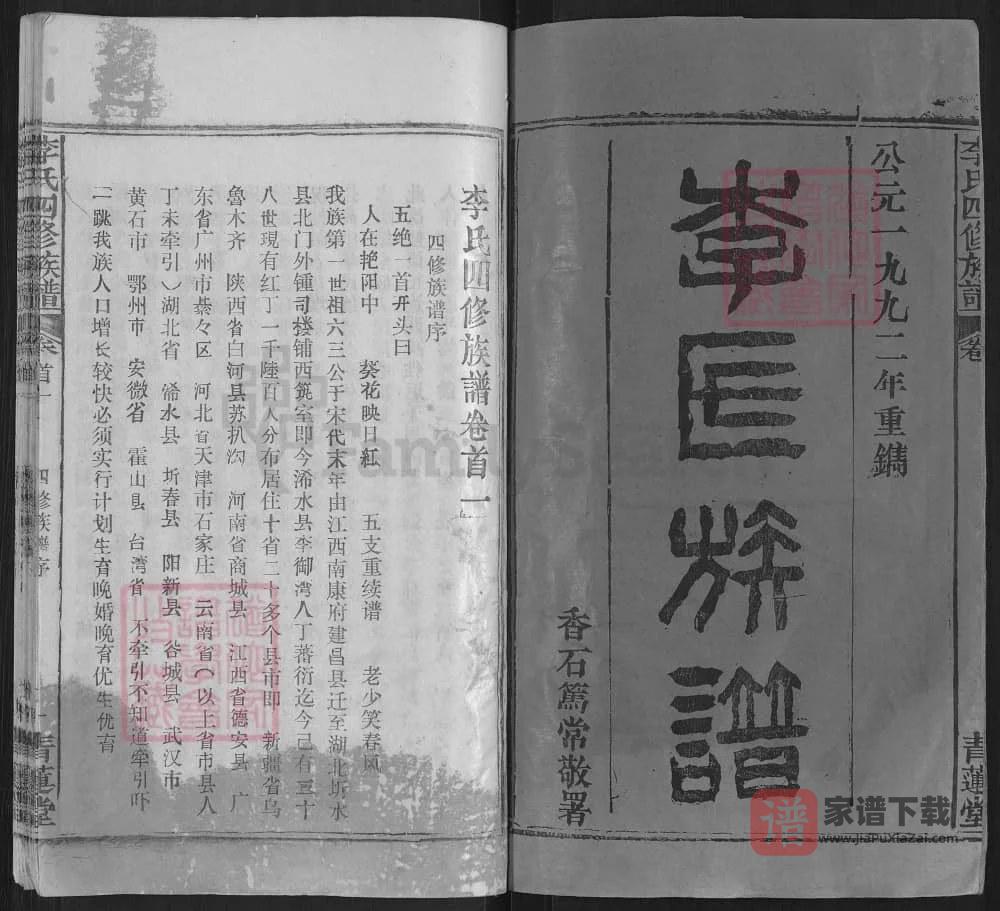 李氏四修族譜 卷
青蓮堂
公元一九九二年重鐫
李氏族譜
香石篤常敬署
李氏四修族譜卷首一
四修族谱序
五绝一首开头曰
人在艳阳中 葵花映日紅 五支重续谱 老少笑春风
我族第一世祖六三公于宋代末年由江西南康府建昌县迁至湖北圻水
县北门外锺司楼铺西篼室即今浠水县李御湾人丁蕃衍迄今己有三十
八世現有红丁一千陸百人分布居住十省二十多个县市即 新疆省乌
魯木齐 陕西省白河县苏扒沟 河南省商城县 江西省德安县 广
东省广州市綦々区 河北省天津市石家庄 云南省(以上省市县人
丁未牵引)湖北省 浠水县 圻春县 阳新县 谷城县 武汉市
黄石市 鄂州市 安微省 霍山县 台湾省 不牵引不知道牵引吓
二跳我族人口增长较快必须实行计划生育晚婚晚育优生优育
李氏四修族譜 卷首一 四修族谱序 一 青蓮堂
谱 家谱下载
www.JiaPuXiaZai.com
FamilySear